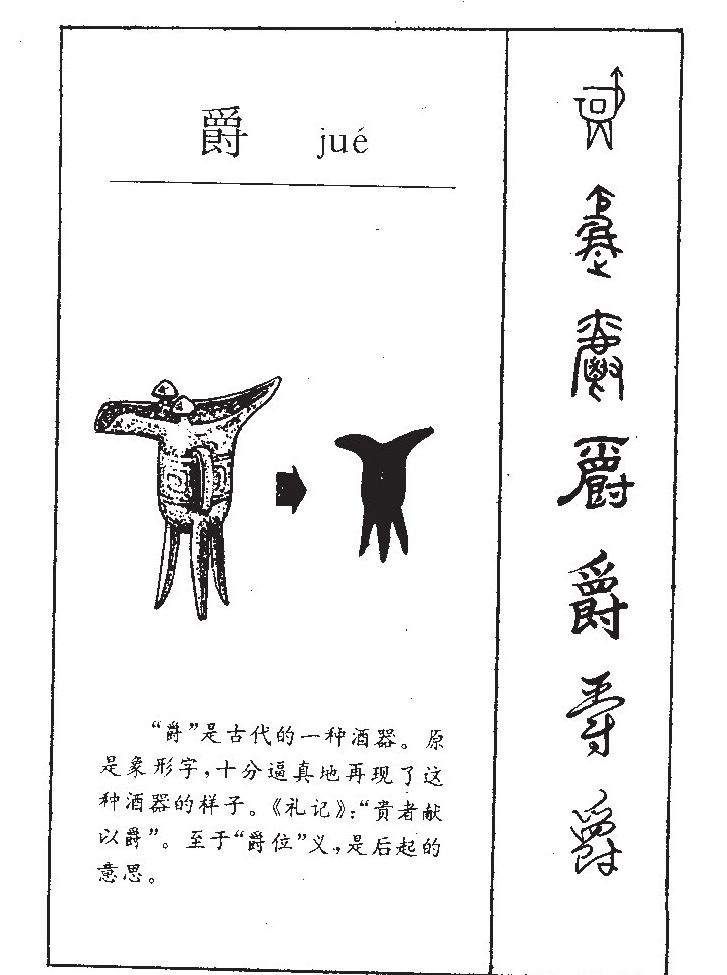 爵 jué
“爵”是古代的一种酒器。原
是象形字，十分逼真地再现了这
种酒器的样子。《礼记》：“贵者献
以爵”。至于“爵位”义，是后起的
意思。
爵
爵